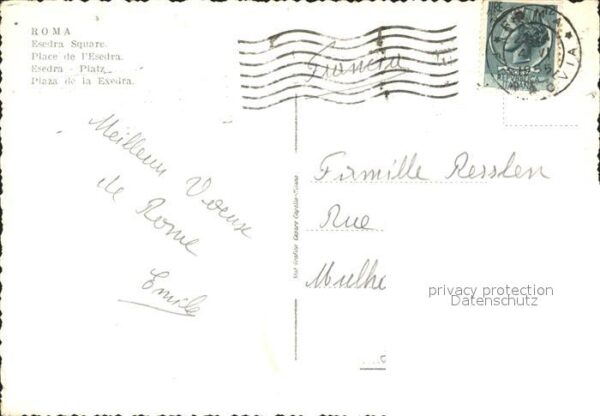 ROMA
Esedra Square.
Place de l'Esedra.
Esedra - Platz.
Plaza de la Exedra.
Francia
Meilleur Voeux
de Rome
Emile
Famille Ressler
Rue
Mulhe
privacy protection
Datenschutz